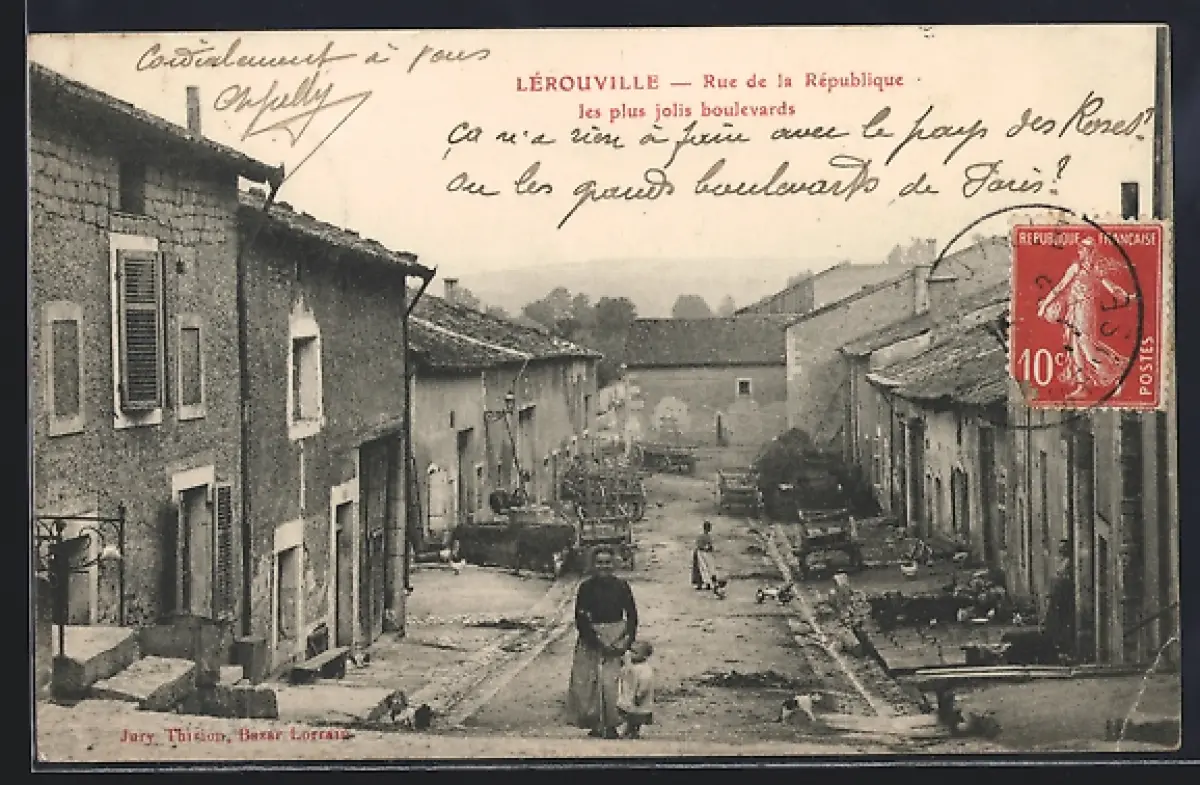 Cordialement à vous
LÉROUVILLE — Rue de la République
les plus jolis boulevards
Ça n'a rien à faire avec le pays des Roses!
Ou les grands boulevards de Paris?
REPUBLIQUE FRANÇAISE
10c
POSTES
Jury Thirion, Bazar Lorrain